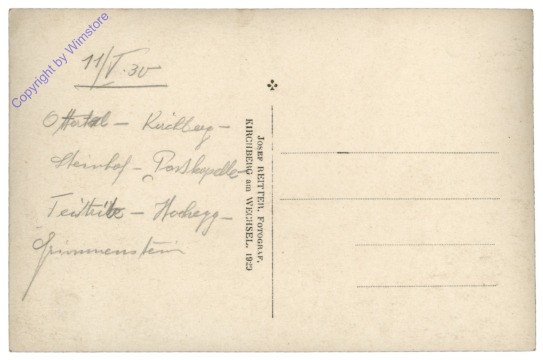 Copyright by Wimstore
11/V.30
Ottertal - Kirchberg -
Steinhof - Postkapelle
- Hochegg -
Grimmenstein
JOSEF REITTER, FOTOGRAF,
KIRCHBERG am WECHSEL. 1929